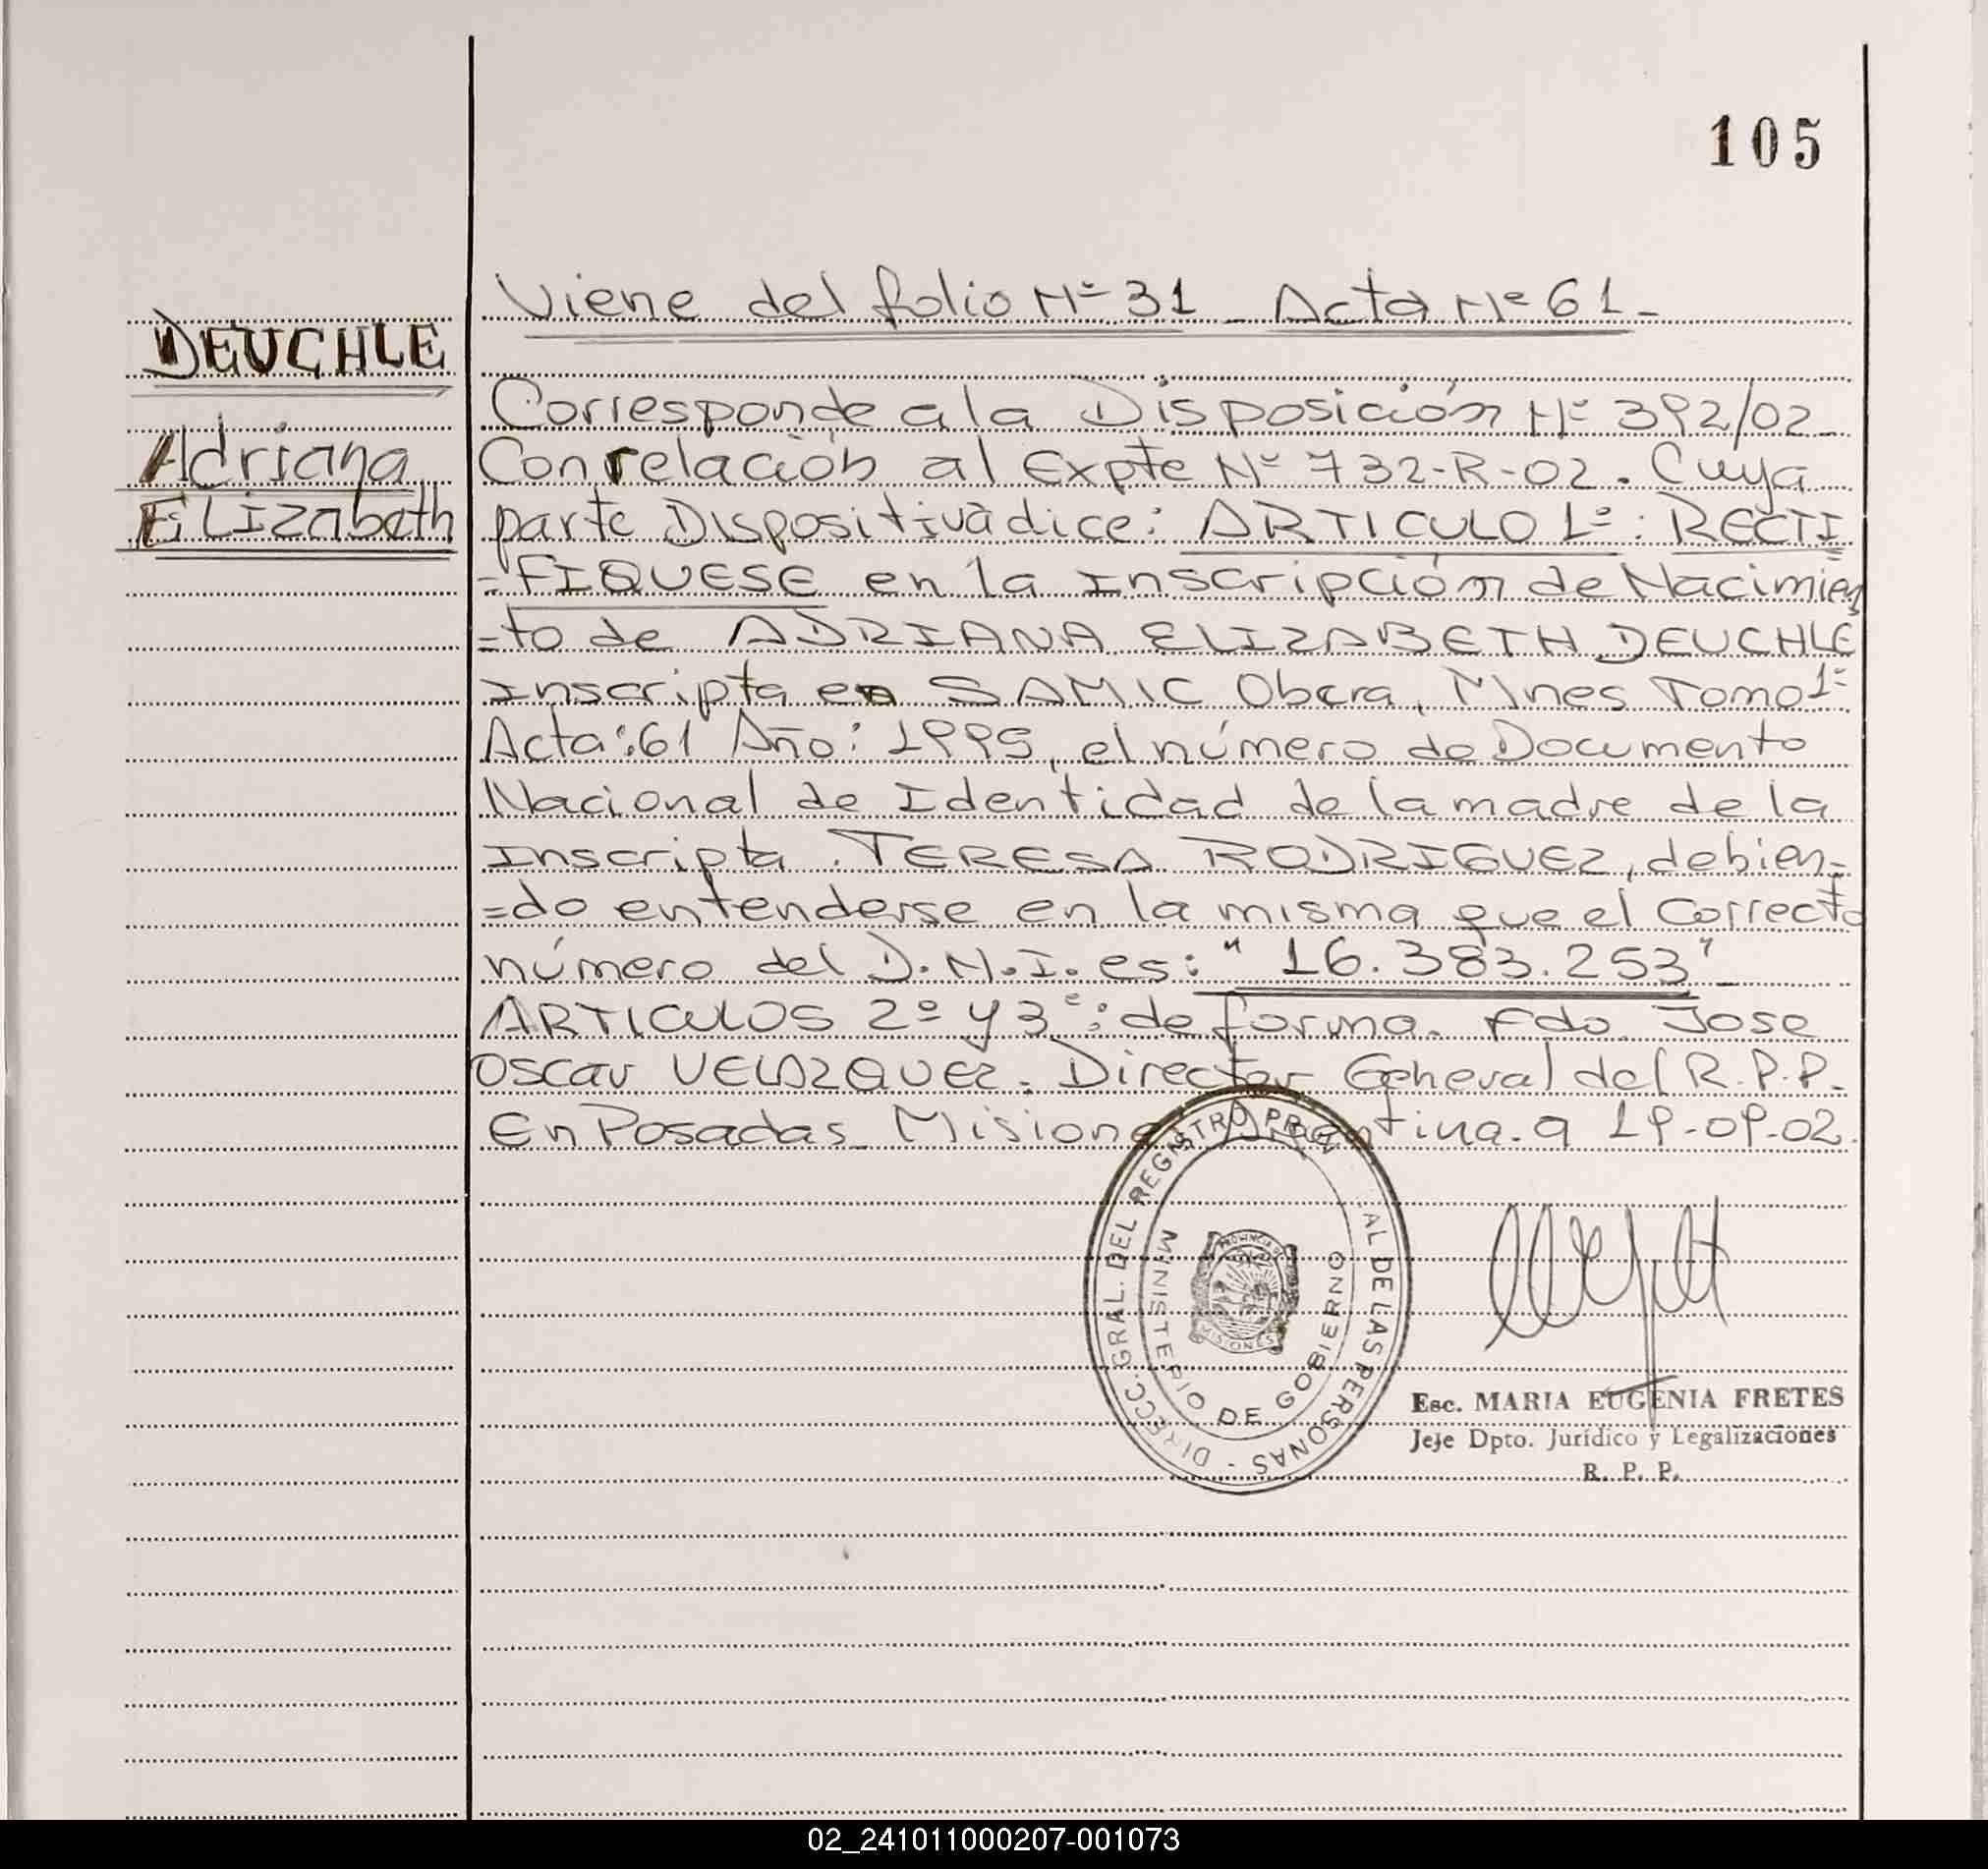 105
Viene del folio Nº 31 - Acta Nº 61 -
DEUCHLE
Adriana
Elizabeth
Corresponde a la Disposición Nº 392/02
Con relación al Expte Nº 732-R-02. Cuya
parte Dispositiva dice: ARTICULO 1º: RECTI
=FIQUESE en la Inscripción de Nacimien
=to de ADRIANA ELIZABETH DEUCHLE
Inscripta en SAMIC Obera, Mnes Tomo 1º
Acta: 61 Año: 1995, el número de Documento
Nacional de Identidad de la madre de la
Inscripta TERESA RODRIGUEZ, debien=
=do entenderse en la misma que el correcto
número del D.N.I. es: "16.383.253"
ARTICULOS 2º y 3º: de forma. Fdo. Jose
Oscar VELAZQUEZ. Director General del R.P.P.
En Posadas Misiones Argentina. a 19-09-02.
DIRECC. GRAL. DEL REGISTRO PROVINCIAL DE LAS PERSONAS -
MINISTERIO DE GOBIERNO
PROVINCIA DE
MISIONES
Esc. MARIA EUGENIA FRETES
Jefe Dpto. Jurídico y Legalizaciones
R. P. P.
02_241011000207-001073